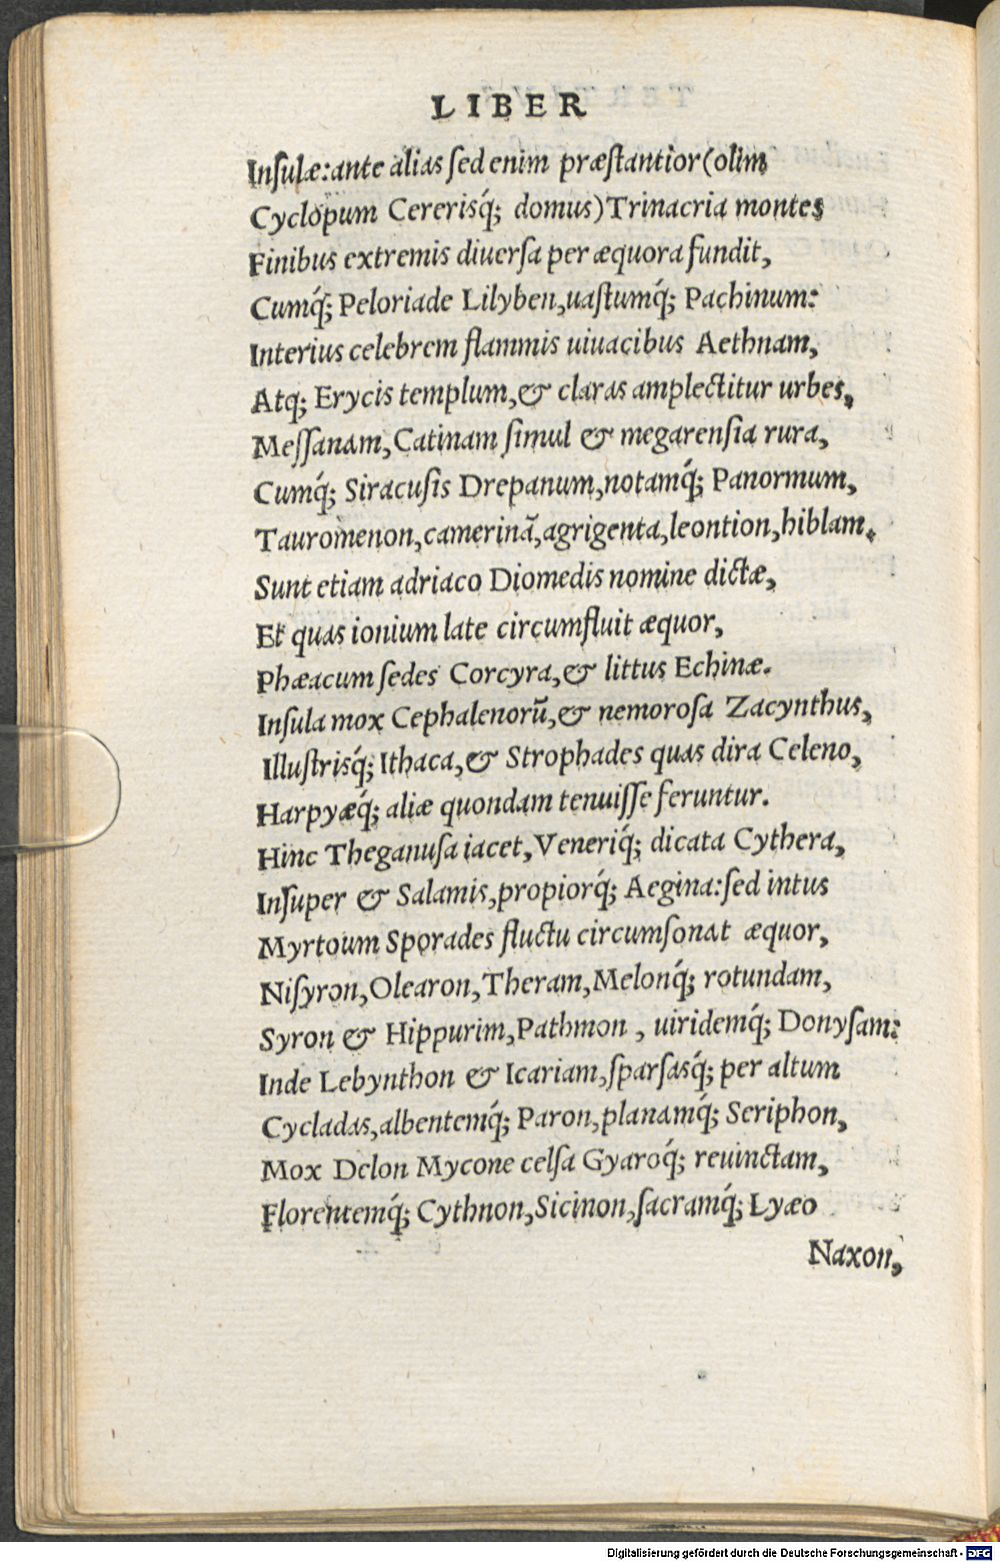 LIBER
Inſulæ:ante alias ſed enim præſtantior(olim
Cyclopum Cererisq́; domus)Trinacria montes
Finibus extremis diuerſa per æquora fundit,
Cumq́; Peloriade Lilyben,uaſtumq́; Pachinum:
Interius celebrem flammis uiuacibus Aethnam,
Atq; Erycis templum,& claras amplectitur urbes,
Meſſanam,Catinam ſimul & megarenſia rura,
Cumq́; Siracuſis Drepanum,notamq́; Panormum,
Tauromenon,camerinã,agrigenta,leontion,hiblam.
Sunt etiam adriaco Diomedis nomine dictæ,
Et quas ionium late circumfluit æquor,
Phæacum ſedes Corcyra,& littus Echinæ.
Inſula mox Cephalenorũ,& nemoroſa Zacynthus,
Illuſtrisq́; Ithaca,& Strophades quas dira Celeno,
Harpyæq́; aliæ quondam tenuiſſe feruntur.
Hinc Theganuſa iacet,Veneriq́; dicata Cythera,
Inſuper & Salamis,propiorq́; Aegina:ſed intus
Myrtoum Sporades fluctu circumſonat æquor,
Niſyron,Olearon,Theram,Melonq́; rotundam,
Syron & Hippurim,Pathmon , uiridemq́; Donyſam:
Inde Lebynthon & Icariam,ſparſasq́; per altum
Cycladas,albentemq́; Paron,planamq́; Seriphon,
Mox Delon Mycone celſa Gyaroq́; reuinctam,
Florentemq́; Cythnon,Sicinon,ſacramq́; Lyæo
Naxon,
Digitalisierung gefördert durch die Deutsche Forschungsgemeinschaft - DFG